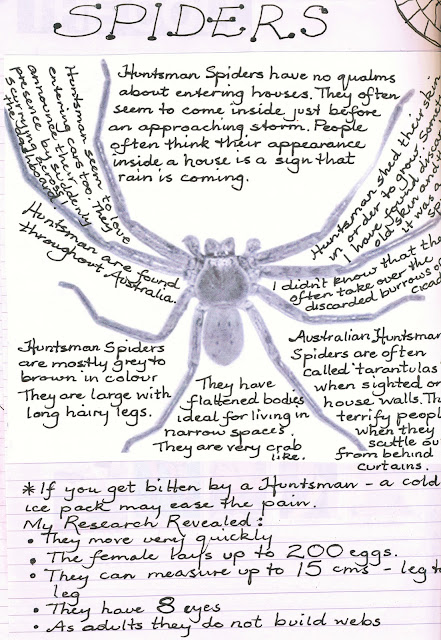 SPIDERS
Huntsman Spiders have no qualms
about entering houses. They often
seem to come inside just before
an approaching storm. People
often think their appearance
inside a house is a sign that
rain is coming.
Huntsman seem to love
entering cars too. They
announce their
presence by suddenly
scurrying across
the dashboard!
Huntsman are found
throughout Australia.
Huntsman shed their skin
in order to grow. Som
I have found disca
old skin and
it was a
sp
I didn't know that the
often take over the
discarded burrows of
cicad
Huntsman Spiders
are mostly grey to
brown in colour
They are large with
long hairy legs.
They have
flattened bodies
ideal for living in
narrow spaces.
They are very crab
like.
Australian Huntsman
Spiders are often
called 'tarantulas'
when sighted on
house walls. Th
terrify people
when they
scuttle ou
from behind
curtains.
*If you get bitten by a Huntsman - a cold
ice pack may ease the pain.
My Research Revealed:
• They move very quickly
• The female lays up to 200 eggs.
• They can measure up to 15 cms - leg to
leg
• They have 8 eyes
• As adults they do not build webs